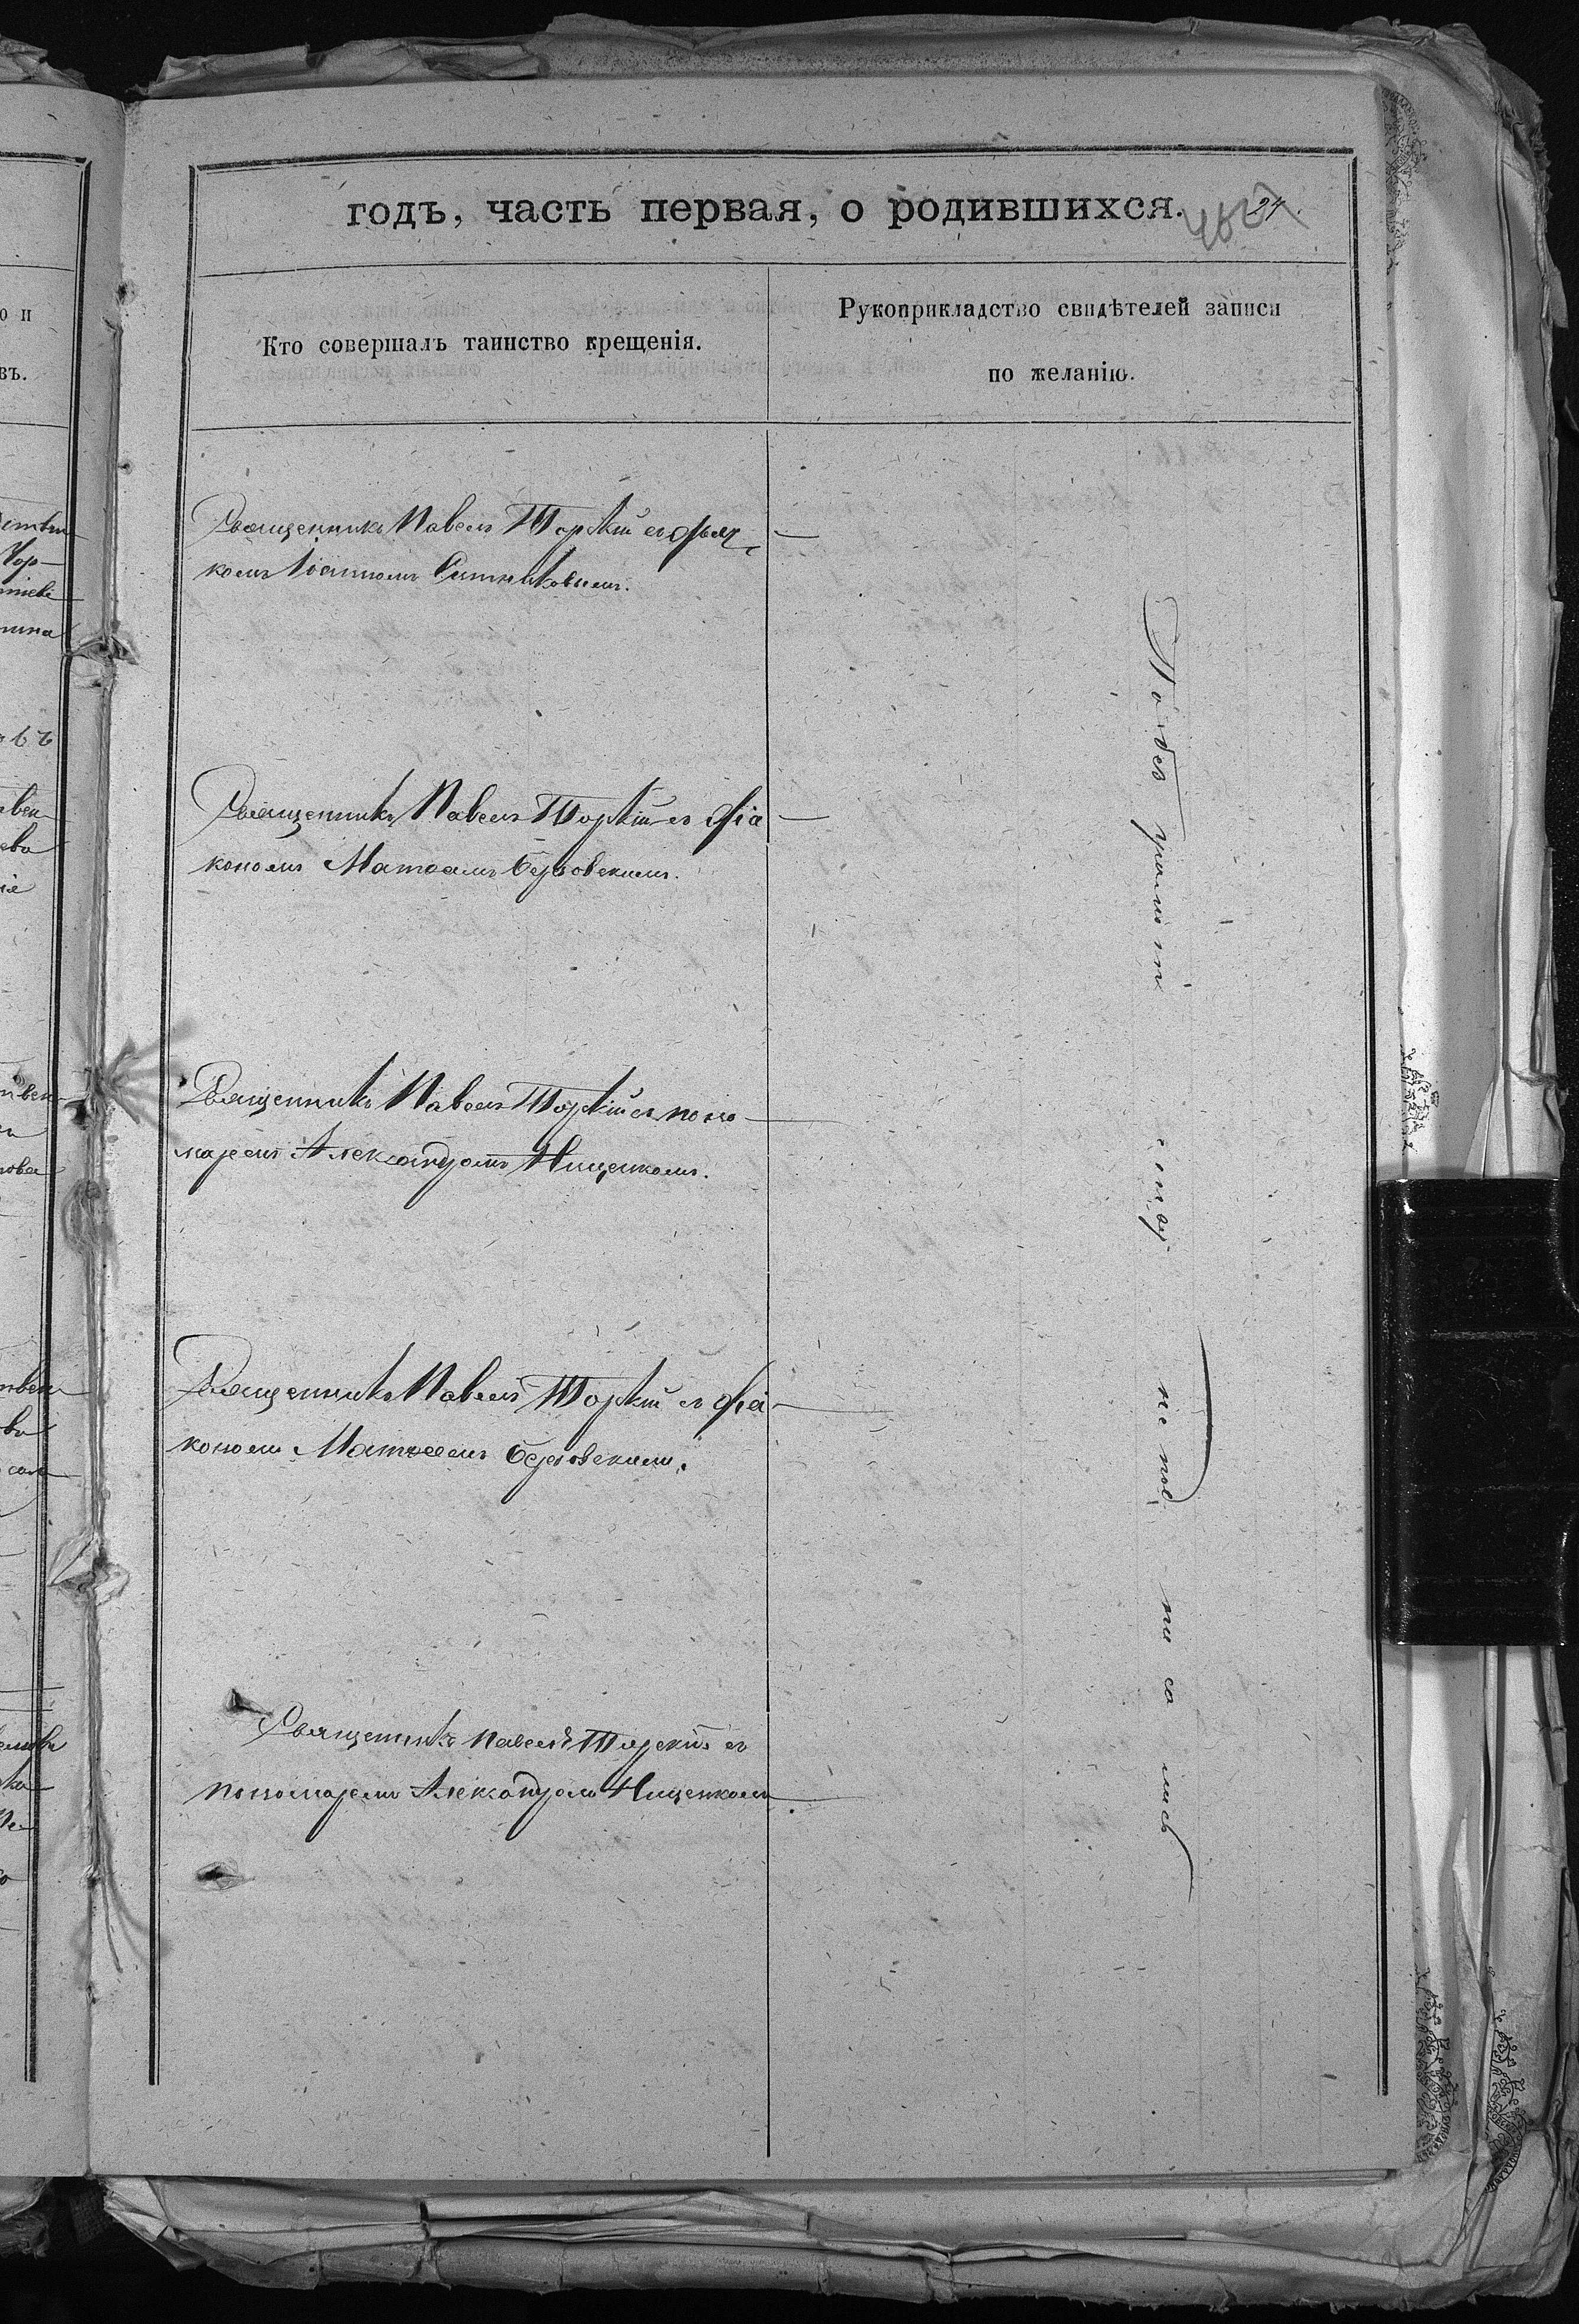 годъ, часть первая, о родившихся.
24.
Кто совершалъ таинство крещенія.
Рукоприкладство свидѣтелей записи
по желанію.
Священникъ Павелъ Торскій съ дьяч
комъ Іоанномъ Ситниковымъ.
Священникъ Павелъ Торскій съ діа
кономъ Матвеемъ
Священникъ Павелъ Торскій съ поно
маремъ Александромъ Нищенкомъ.
Священникъ Павелъ Торскій съ діа
кономъ Матвеемъ
Священникъ Павелъ Торскій съ
пономаремъ Александромъ Нищенкомъ
По без грамотн сту не под пи са лись